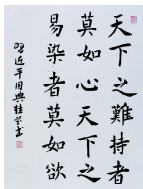 天下之難持者
莫如心天下之
易染者莫如欲
習近平用典桂荣书